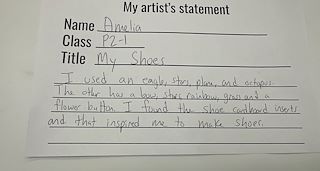 My artist's statement
Name Amelia
Class P2-1
Title My Shoes
I used an eagle, stars, plane, and octopus.
The other has a bow, stars, rainbow, grass and a
flower button. I found the shoe cardboard inserts
and that inspired me to make shoes.